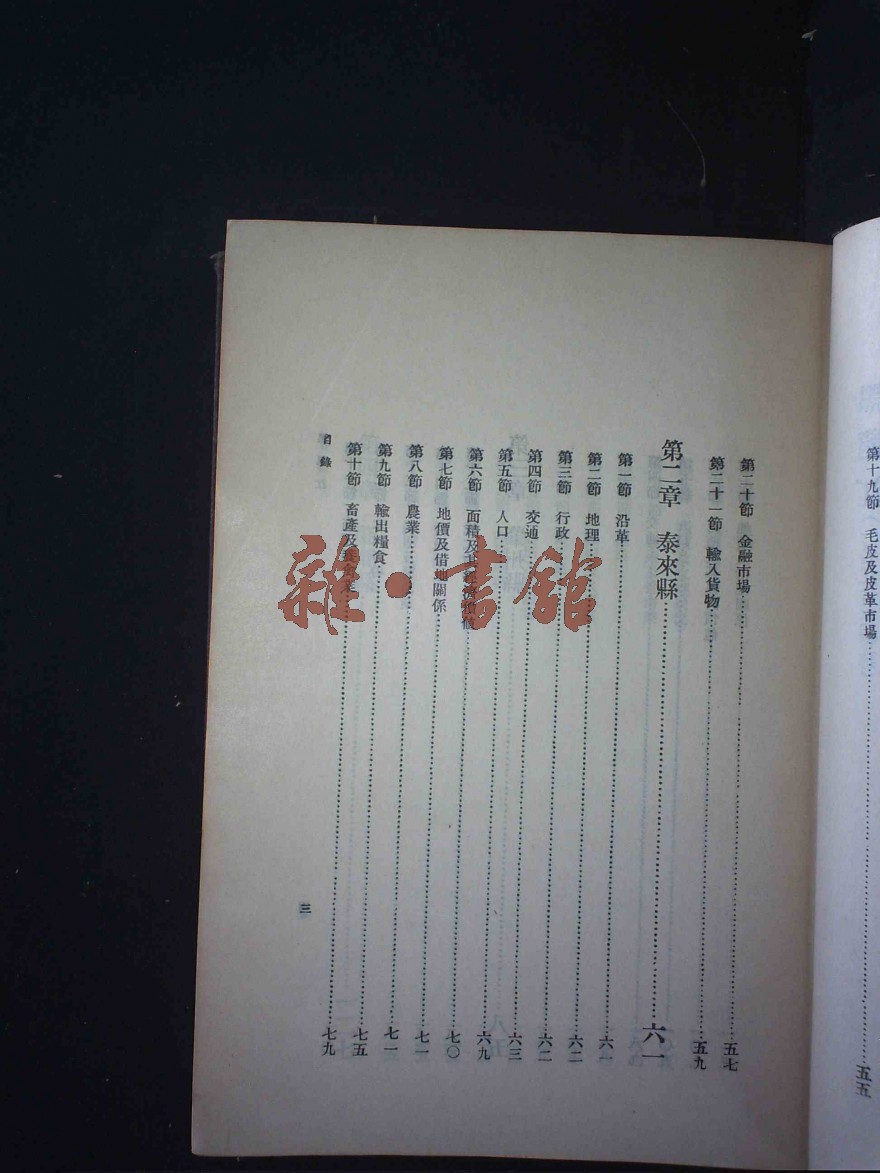 第十九節 毛皮及皮革市場……五五
第二十節 金融市場……五七
第二十一節 輸入貨物……五九
第二章 泰來縣……六一
第一節 沿革……六一
第二節 地理……六二
第三節 行政……六二
第四節 交通……六三
第五節 人口……六九
第六節 面積及其經濟價值……七〇
第七節 地價及借地關係……七一
第八節 農業……七一
第九節 輸出糧食……七五
第十節 畜產及養魚業……七九
目錄
三
雜·書館